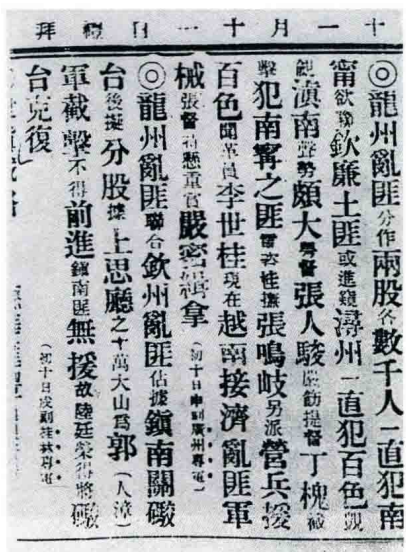 十一月十一日禮拜
◎龍州亂匪分作兩股各數千人一直犯南
甯欲聯欽廉土匪或進潯州一直犯百色覬
覦滇南聲勢頗大粵督張人駿嚴飭提督丁槐截
擊犯南甯之匪電咨桂撫張鳴岐另派營兵援
百色聞革員李世桂現在越南接濟亂匪軍
械張督特懸重賞嚴密緝拿（初十日申刻廣州專電）
◎龍州亂匪聯合欽州亂匪佔據鎮南關礮
台後擬分股據上思廳之十萬大山爲郭（人漳）
軍截擊不得前進鎮南匪無援故陸廷榮得將礮
台克復（初十日戌刻桂林專電）